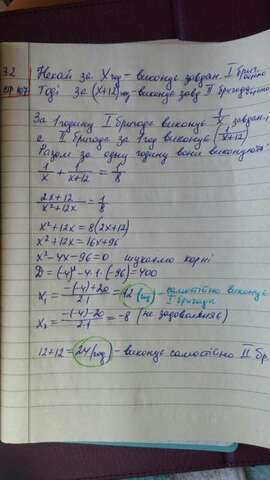 32
стр 107
Нехай за x год - виконує завдан. I бриг.
Тоді за (x+12) год - виконує завд II бригада
За 1 годину I бригада виконує 1/x завдан.
а II бригада за 1 год виконує 1/(x+12)
Разом за одну годину вони виконують:
1/x + 1/(x+12) = 1/8
(2x+12)/(x²+12x) = 1/8
x²+12x = 8(2x+12)
x²+12x = 16x+96
x²-4x-96=0 шукаємо корні
D=(-4)²-4·1·(-96)=400
x₁ = (-(-4)+20)/(2·1) = 12 (год) - самостійно виконує
I бригада
x₂ = (-(-4)-20)/(2·1) = -8 (не задовольняє)
12+12=24 (год) - виконує самостійно II бр.